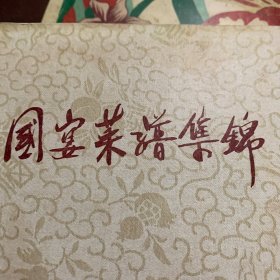 國宴菜譜集錦